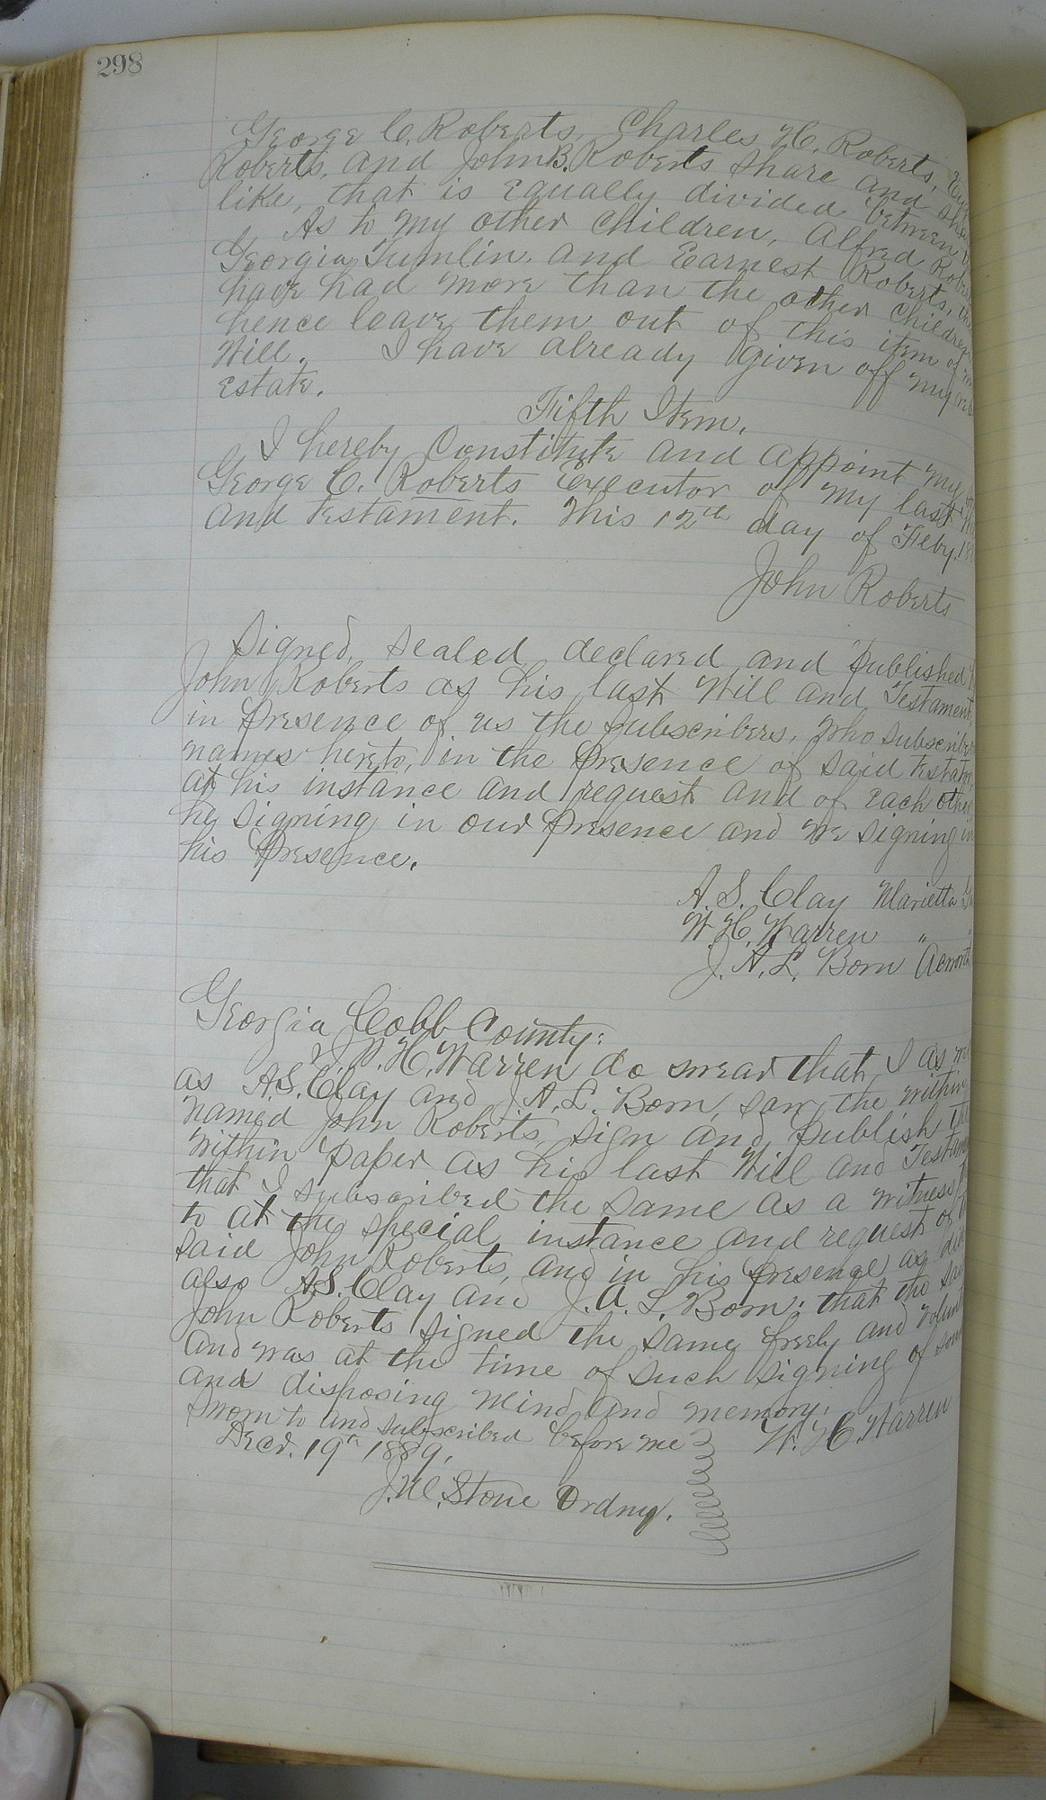 298
George C. Roberts, Charles H. Roberts,
Roberts, and John B. Roberts Share and
like, that is Equally divided between
As to my other Children, Alfred
Georgia Tumlin, and Earnest Roberts,
have had more than the other Children
hence leave them out of this item of
Will. I have already given off my
Estate.
Fifth Item.
I hereby Constitute and appoint my
George C. Roberts Executor of my last
and testament. This 12th day of Feby.
John Roberts
Signed, Sealed declared and Published
John Roberts as his last Will and Testament
in presence of us the Subscribers, who subscribe
names hereto, in the presence of Said testator
at his instance and request and of Each other
he Signing in our presence and we Signing in
his presence.
A. S. Clay Marietta
W. H. Warren "
J. A. L. Born Acworth
Georgia Cobb County:
H. Warren do swear that I as
as A.S. Clay and J. A. L. Born, saw the within
named John Roberts, sign and publish
within paper as his last Will and
that I subscribed the same as a witness
to at the special instance and request of
said John Roberts, and in his presence as did
also A.S. Clay and J. A. L. Born; that the
John Roberts signed the same freely and
and was at the time of such Signing of
and disposing mind and memory.
Sworn to and subscribed before me W. H. Warren
Decr. 19th 1889.
J. M. Stone Ordny.